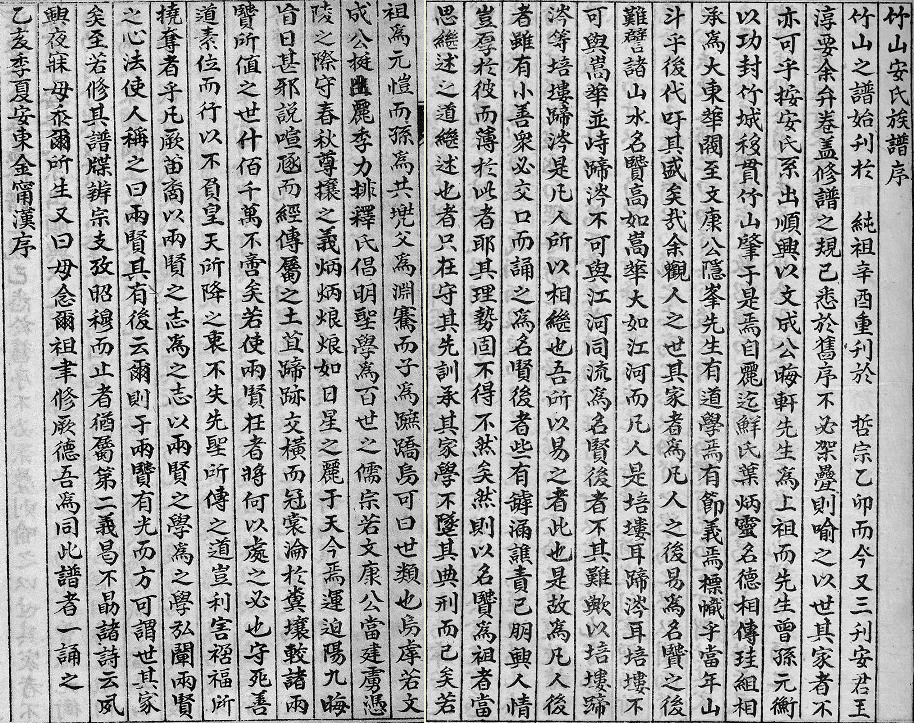 竹山安氏族譜序
竹山之譜始刊於 純祖辛酉重刊於 哲宗乙卯而今又三刊安君王
淳要余弁卷盖修譜之規已悉於舊序不必架疊則喻之以世其家者不
亦可乎按安氏系出順興以文成公晦軒先生爲上祖而先生曾孫元衡
以功封竹城移貫竹山肇于是焉自麗迄鮮氏葉炳靈名德相傳珪組相
承爲大東華閥至文康公隱峯先生有道學焉有節義焉標幟乎當年山
斗乎後代吁其盛矣哉余觀人之世其家者爲凡人之後易爲名賢之後
難譬諸山水名賢高如嵩華大如江河而凡人是培塿耳蹄涔耳培塿不
可與嵩華並峙蹄涔不可與江河同流爲名賢後者不其難歟以培塿蹄
涔等培塿蹄涔是凡人所以相繼也吾所以易之者此也是故爲凡人後
者雖有小善衆必交口而誦之爲名賢後者些有罅漏譙責已朋興人情
豈厚於彼而薄於此者耶其理勢固不得不然矣然則以名賢爲祖者當
思繼述之道繼述也者只在守其先訓承其家學不墜其典刑而已矣若
祖爲元愷而孫爲共兜父爲淵騫而子爲蹻烏可曰世類也烏虖若文
成公挺出麗季力排釋氏倡明聖學爲百世之儒宗若文康公當建虜憑
陵之際守春秋尊攘之義炳炳烺烺如日星之麗于天今焉運迫陽九晦
盲日甚邪說喧豗而經傳屬之土苴蹄跡交橫而冠裳淪於糞壤較諸兩
賢所值之世什佰千萬不啻矣若使兩賢在者將何以處之必也守死善
道素位而行以不負皇天所降之衷不失先聖所傳之道豈利害禍福所
撓奪者乎凡厥苗裔以兩賢之志爲之志以兩賢之學爲之學弘闡兩賢
之心法使人稱之曰兩賢其有後云爾則于兩賢有光而方可謂世其家
矣至若修其譜牒辨宗支攷昭穆而止者猶屬第二義曷不勗諸詩云夙
興夜寐毋忝爾所生又曰毋念爾祖聿修厥德吾爲同此譜者一誦之
乙亥季夏安東金甯漢序